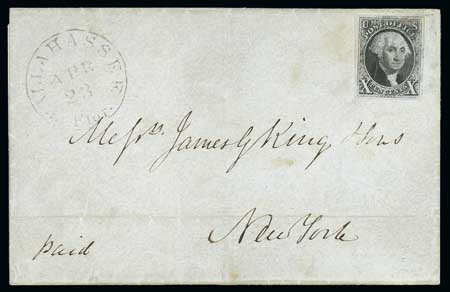 TALLAHASSEE
APR
23
Flor.
POST OFFICE
X X
Messrs. James G King & Sons
New York
paid